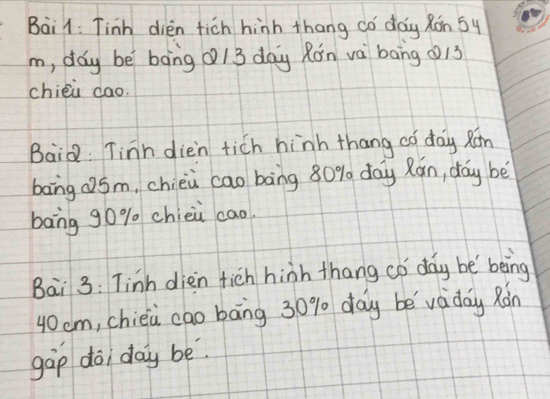 Bài 1: Tính diện tích hình thang có đáy lớn 54
m, đáy bé bằng 2/3 đáy lớn và bằng 2/3
chiều cao.
Bài 2: Tính diện tích hình thang có đáy lớn
bằng 25m, chiều cao bằng 80% đáy lớn, đáy bé
bằng 90% chiều cao.
Bài 3: Tính diện tích hình thang có đáy bé bằng
40 cm, chiều cao bằng 30% đáy bé và đáy lớn
gấp đôi đáy bé.